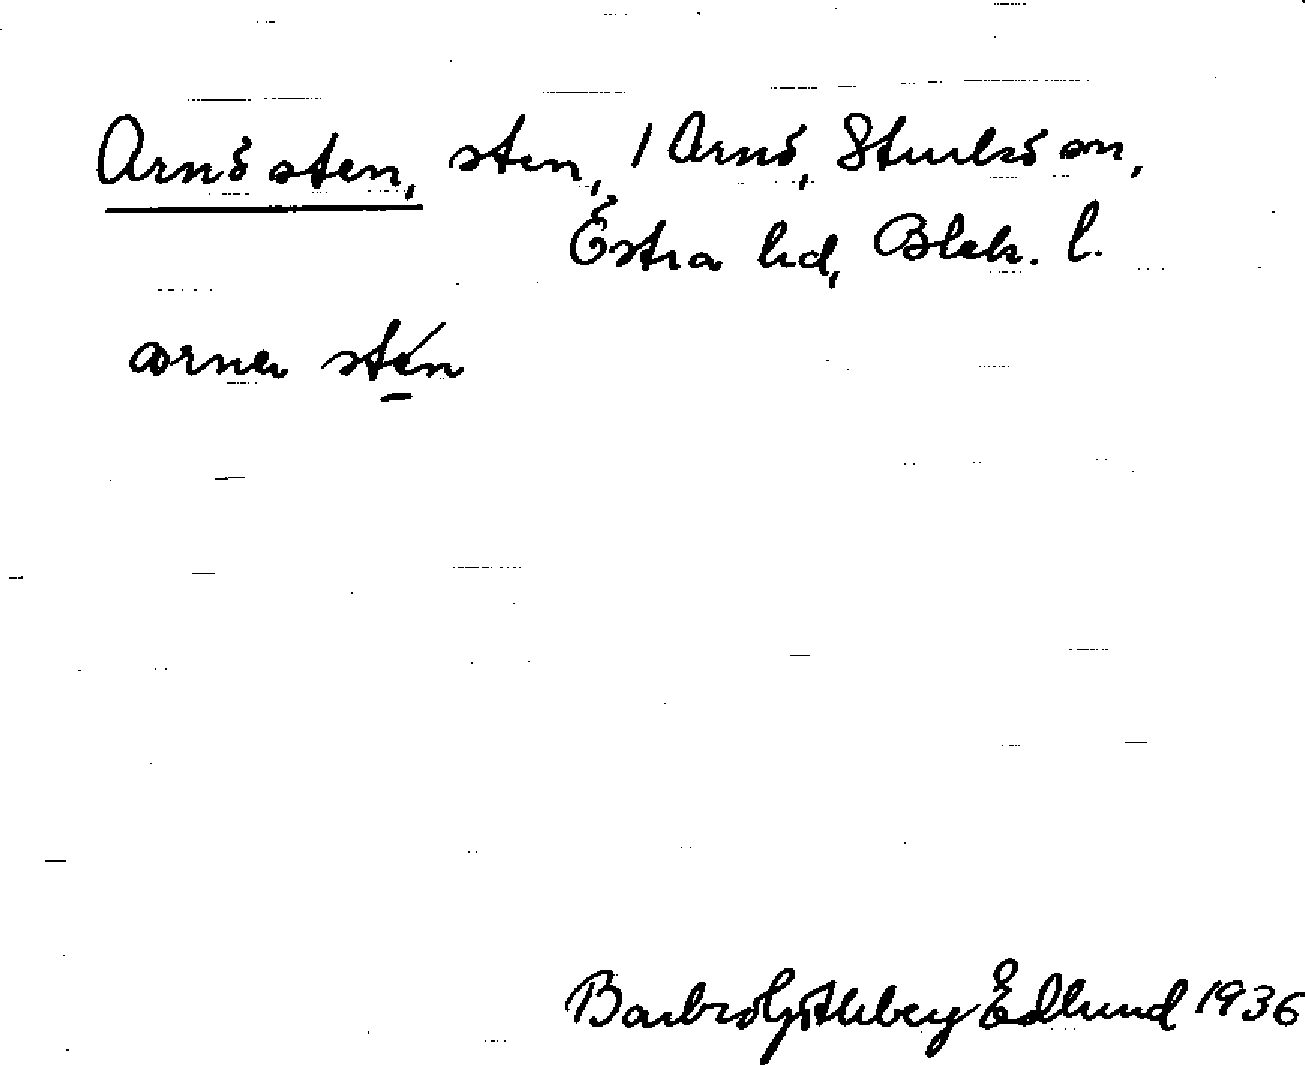 Arnö sten, sten, / Arnö, Sturkö sn,
Östra hd, Blek. l.
arner stén
Barbro Götheberg Edlund 1936